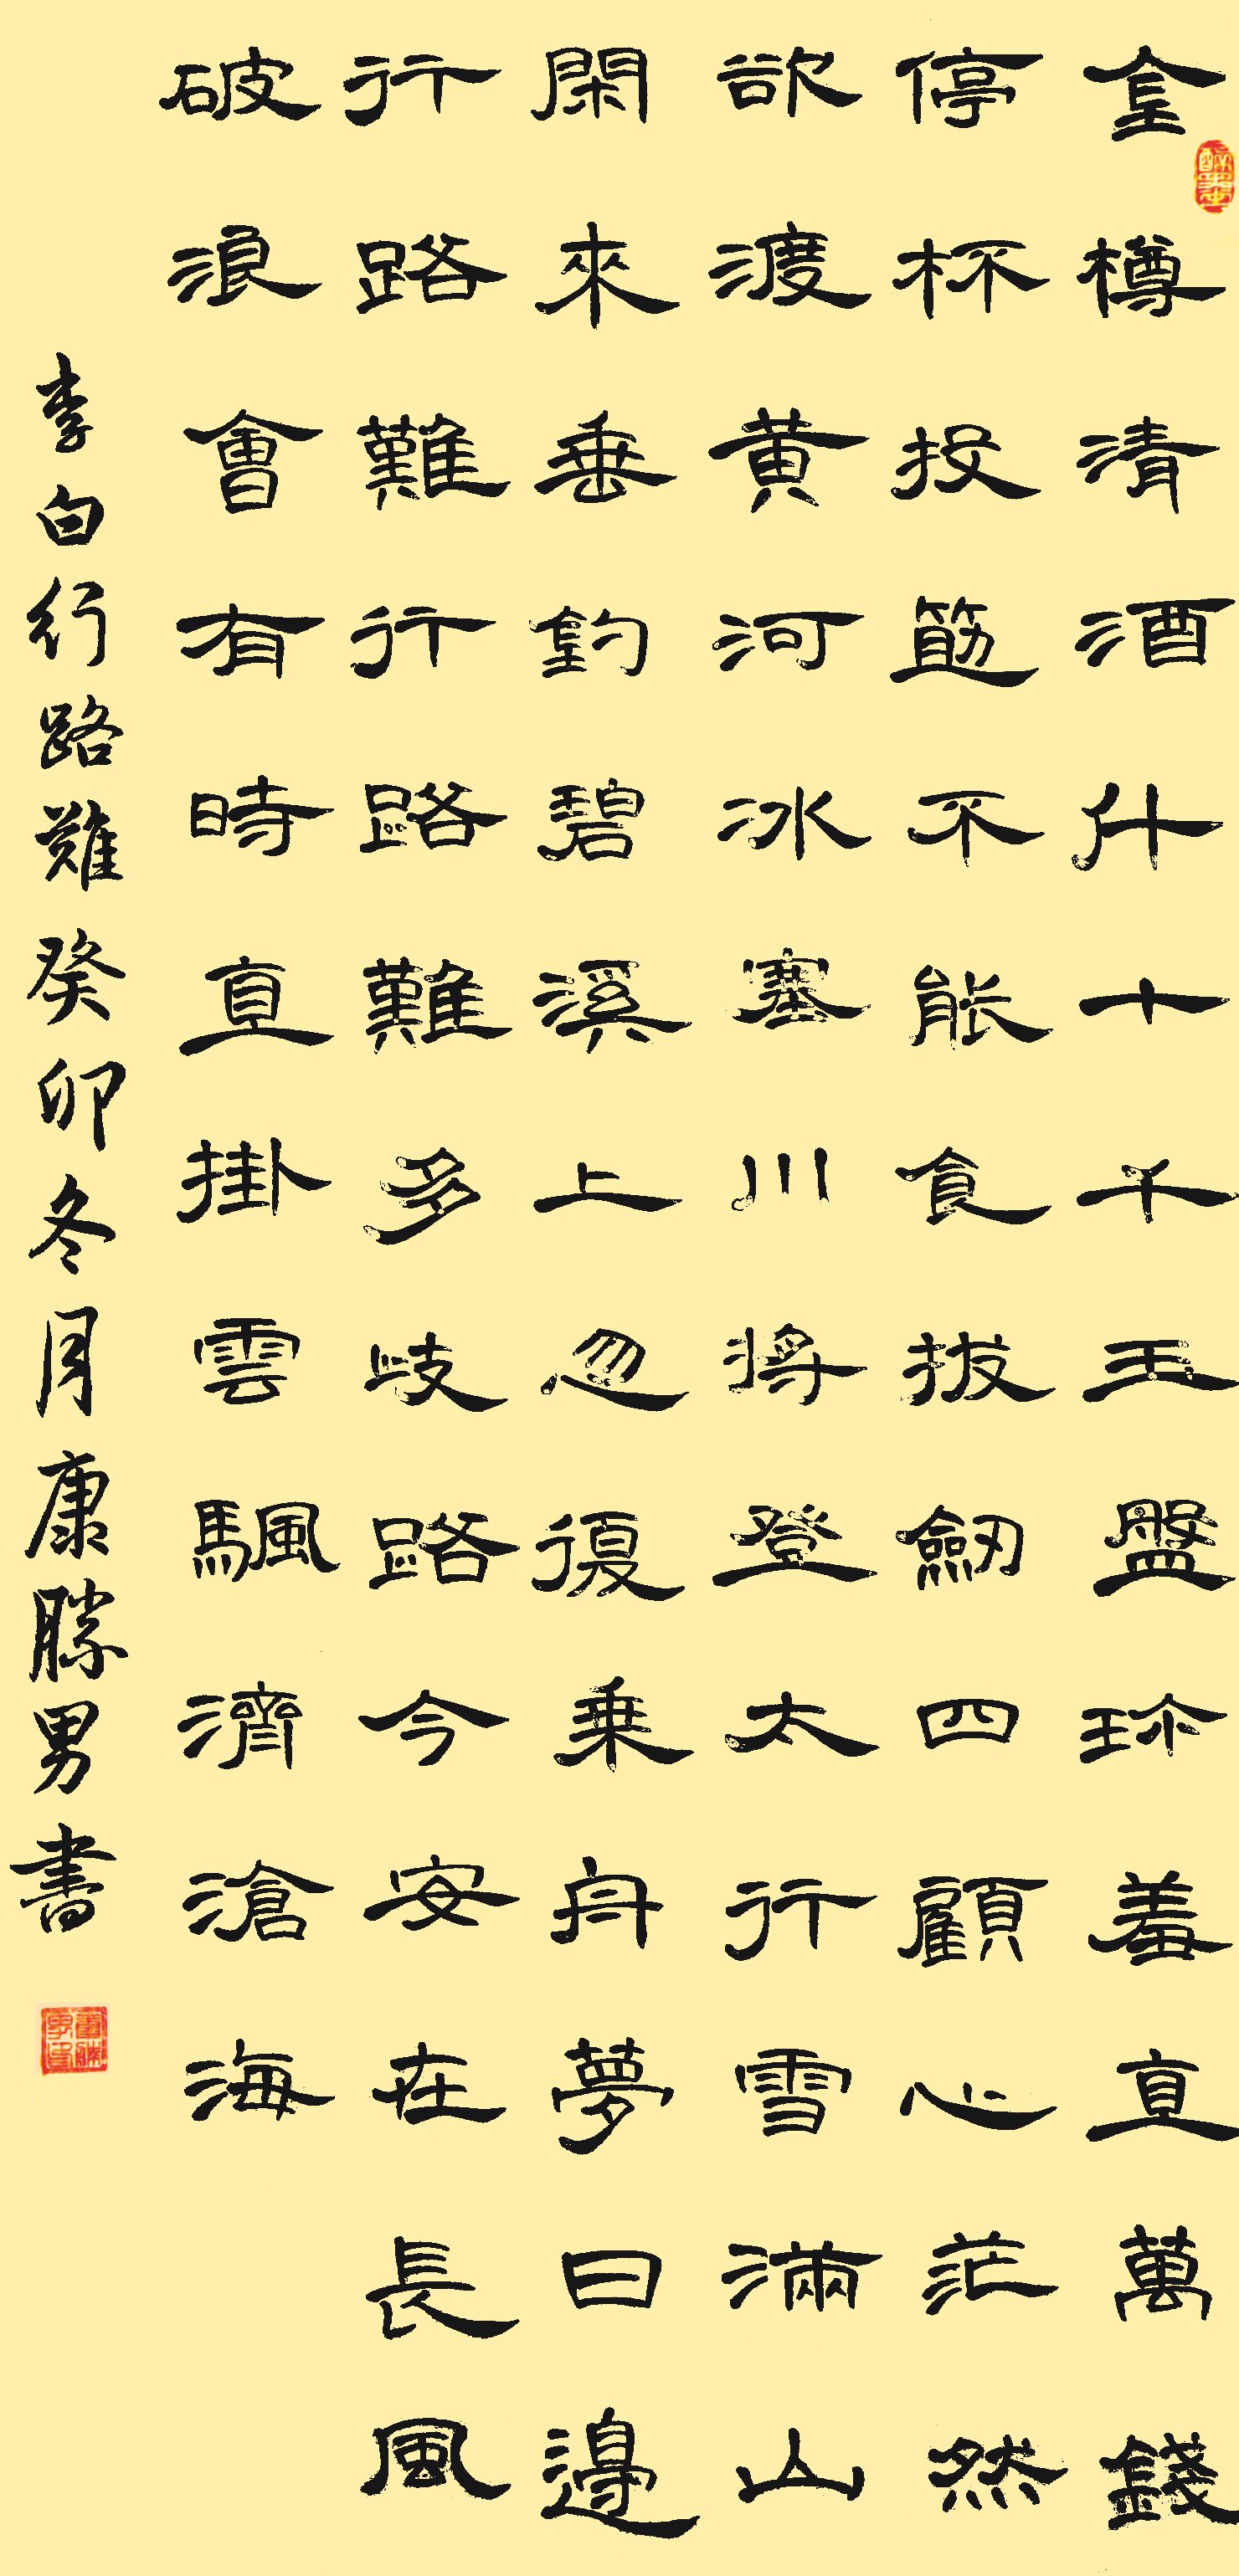 金樽清酒斗十千玉盤珎羞直萬錢
停杯投筯不能食拔劒四顧心茫然
欲渡黄河冰塞川將登太行雪滿山
閑來垂釣碧溪上忽復乘舟夢日邊
行路難行路難多歧路今安在長風
破浪會有時直掛雲颿濟滄海
李白行路難癸卯冬月康勝男書
康勝男印